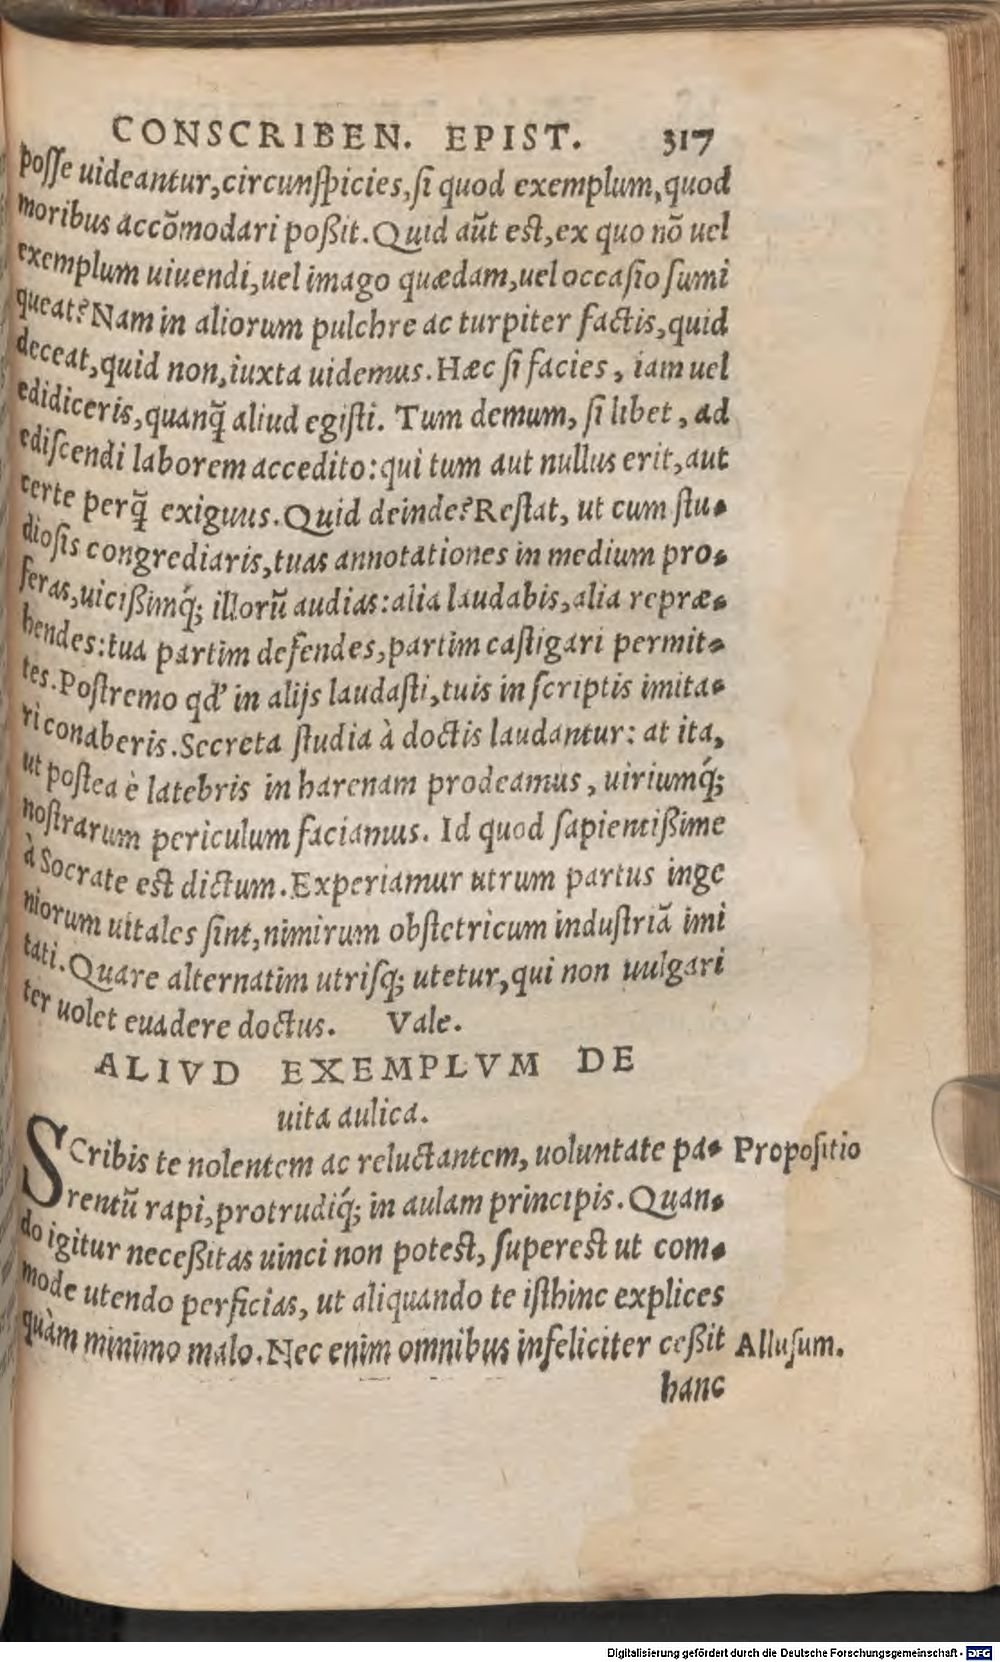 CONSCRIBEN. EPIST. 317
posse uideantur, circunspicies, si quod exemplum, quod
moribus accõmodari poßit. Quid aũt est, ex quo nõ uel
exemplum uiuendi, uel imago quædam, uel occasio sumi
queat? Nam in aliorum pulchre ac turpiter factis, quid
deceat, quid non, iuxta uidemus. Hæc si facies, iam uel
edidiceris, quanq̃ aliud egisti. Tum demum, si libet, ad
ediscendi laborem accedito: qui tum aut nullus erit, aut
certe perq̃ exiguus. Quid deinde? Restat, ut cum stu-
diosis congrediaris, tuas annotationes in medium pro-
feras, uicißimq́; illorũ audias: alia laudabis, alia repræ-
hendes: tua partim defendes, partim castigari permit-
tes. Postremo qd' in alijs laudasti, tuis in scriptis imita-
ri conaberis. Secreta studia à doctis laudantur: at ita,
ut postea è latebris in harenam prodeamus, uiriumq́;
nostrarum periculum faciamus. Id quod sapientißime
à Socrate est dictum. Experiamur utrum partus inge
niorum uitales sint, nimirum obstetricum industriã imi
tati. Quare alternatim utrisq; utetur, qui non uulgari
ter uolet euadere doctus. Vale.
ALIVD EXEMPLVM DE
uita aulica.
SCribis te nolentem ac reluctantem, uoluntate pa- Propositio
rentũ rapi, protrudiq́; in aulam principis. Quan-
do igitur neceßitas uinci non potest, superest ut com-
mode utendo perficias, ut aliquando te isthinc explices
quàm minimo malo. Nec enim omnibus infeliciter ceßit Allusum.
hanc
Digitalisierung gefördert durch die Deutsche Forschungsgemeinschaft - DFG